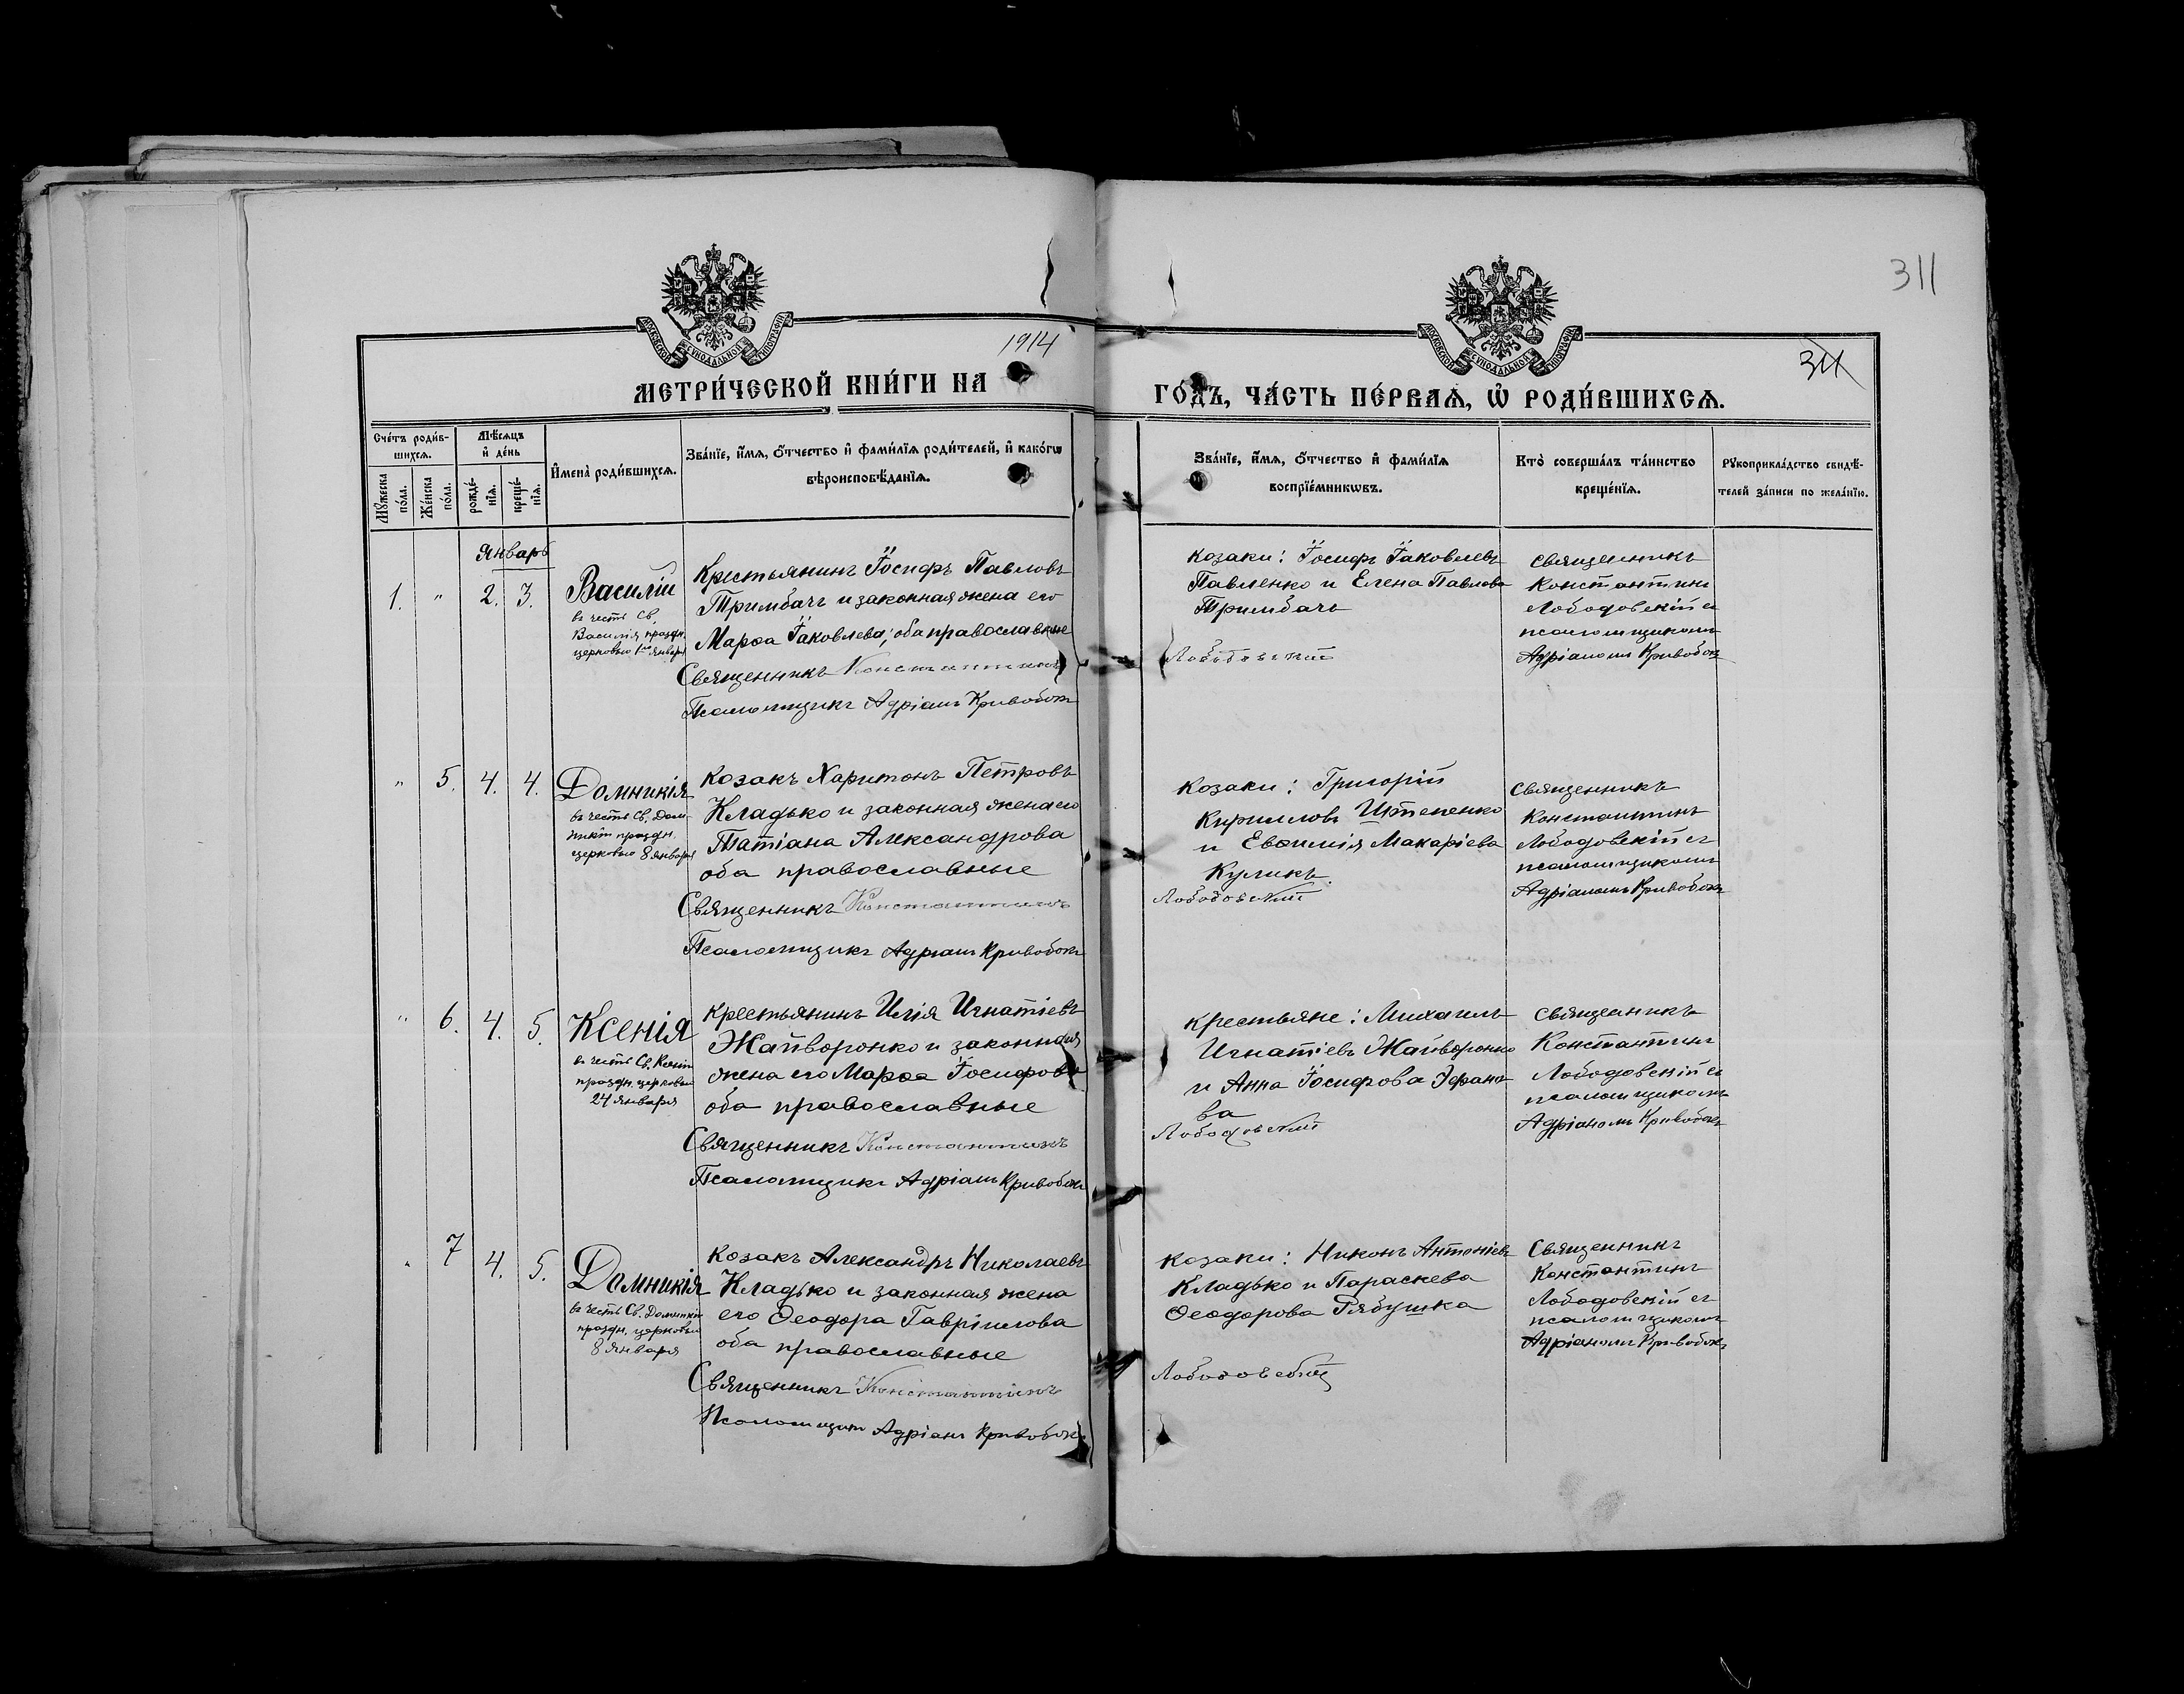 311
1914
311
МОСКОВСКОЙ СѴНОДАЛЬНОЙ ТИПОГРАФІИ
МОСКОВСКОЙ СѴНОДАЛЬНОЙ ТИПОГРАФІИ
МЕТРИ́ЧЕСКОЙ КНИ́ГИ НА
ГО́ДЪ, ЧА́СТЬ ПЕ́РВАѦ, Ѡ РОДИ́ВШИХСѦ.
Сче́тъ роди́в-
шихсѧ.
Мꙋжеска
по́ла.
Же́нска
по́ла.
Мѣ́сѧцъ
и҆ де́нь
рожде́-
нїѧ.
креще́-
нїѧ.
И҆мена̀ роди́вшихсѧ.
Зва́нїе, и҆́мѧ, ѻ҆́тчество и҆ фами́лїѧ роди́телей, и҆ како́гѡ
вѣроисповѣ́данїѧ.
Зва́нїе, и҆́мѧ, ѻ҆́тчество и҆ фами́лїѧ
воспрїе́мникѡвъ.
Кто̀ соверша́лъ та́инство
креще́нїѧ.
Рꙋкоприкла́дство свидѣ́-
телей за́писи по жела́нїю.
Январь
1. " 2. 3.
Василій
въ честь Св.
Василія праздн.
церковью 1го января
Крестьянинъ Іосифъ Павловъ
Тримбачъ и законная жена его
Марѳа Іаковлева; оба православные
Священникъ Константинъ
Псаломщикъ Адріанъ Кривобок
Козаки: Іосифъ Іаковлевъ
Павленко и Елена Павлова
Тримбачъ
Лободовскій
Священникъ
Константинъ
Лободовскій съ
псаломщикомъ
Адріаномъ Кривобок
" 5. 4. 4.
Домникія
въ честь Св. Дом-
никіи праздн.
церковью 8 января
Козакъ Харитонъ Петровъ
Кладько и законная жена его
Татіана Александрова
оба православные
Священникъ Константинъ
Псаломщикъ Адріанъ Кривобокъ
Козаки: Григорій
Кирилловъ Штепенко
и Евѳимія Макаріева
Куликъ.
Лободовскій
Священникъ
Константинъ
Лободовскій съ
псаломщикомъ
Адріаномъ Кривобокъ
" 6. 4. 5.
Ксенія
въ честь Св. Ксеніи
праздн. церковью
24 января
Крестьянинъ Илія Игнатіевъ
Жайворонко и законная
жена его Марѳа Іосифова
оба православные
Священникъ Константинъ
Псаломщикъ Адріанъ Кривобокъ
Крестьяне: Михаилъ
Игнатіевъ Жайворонко
и Анна Іосифова
ва
Лободовскій
Священникъ
Константинъ
Лободовскій съ
псаломщикомъ
Адріаномъ Кривобокъ
" 7 4. 5.
Домникія
въ честь Св. Домникіи
праздн. церковью
8 января
Козакъ Александръ Николаевъ
Кладько и законная жена
его Ѳеодора Гавріилова
оба православные
Священникъ Константинъ
Псаломщикъ Адріанъ Кривобокъ
Козаки: Никонъ Антоніевъ
Кладько и Параскева
Ѳеодорова Рябушка
Лободовскій
Священникъ
Константинъ
Лободовскій съ
псаломщикомъ
Адріаномъ Кривобокъ